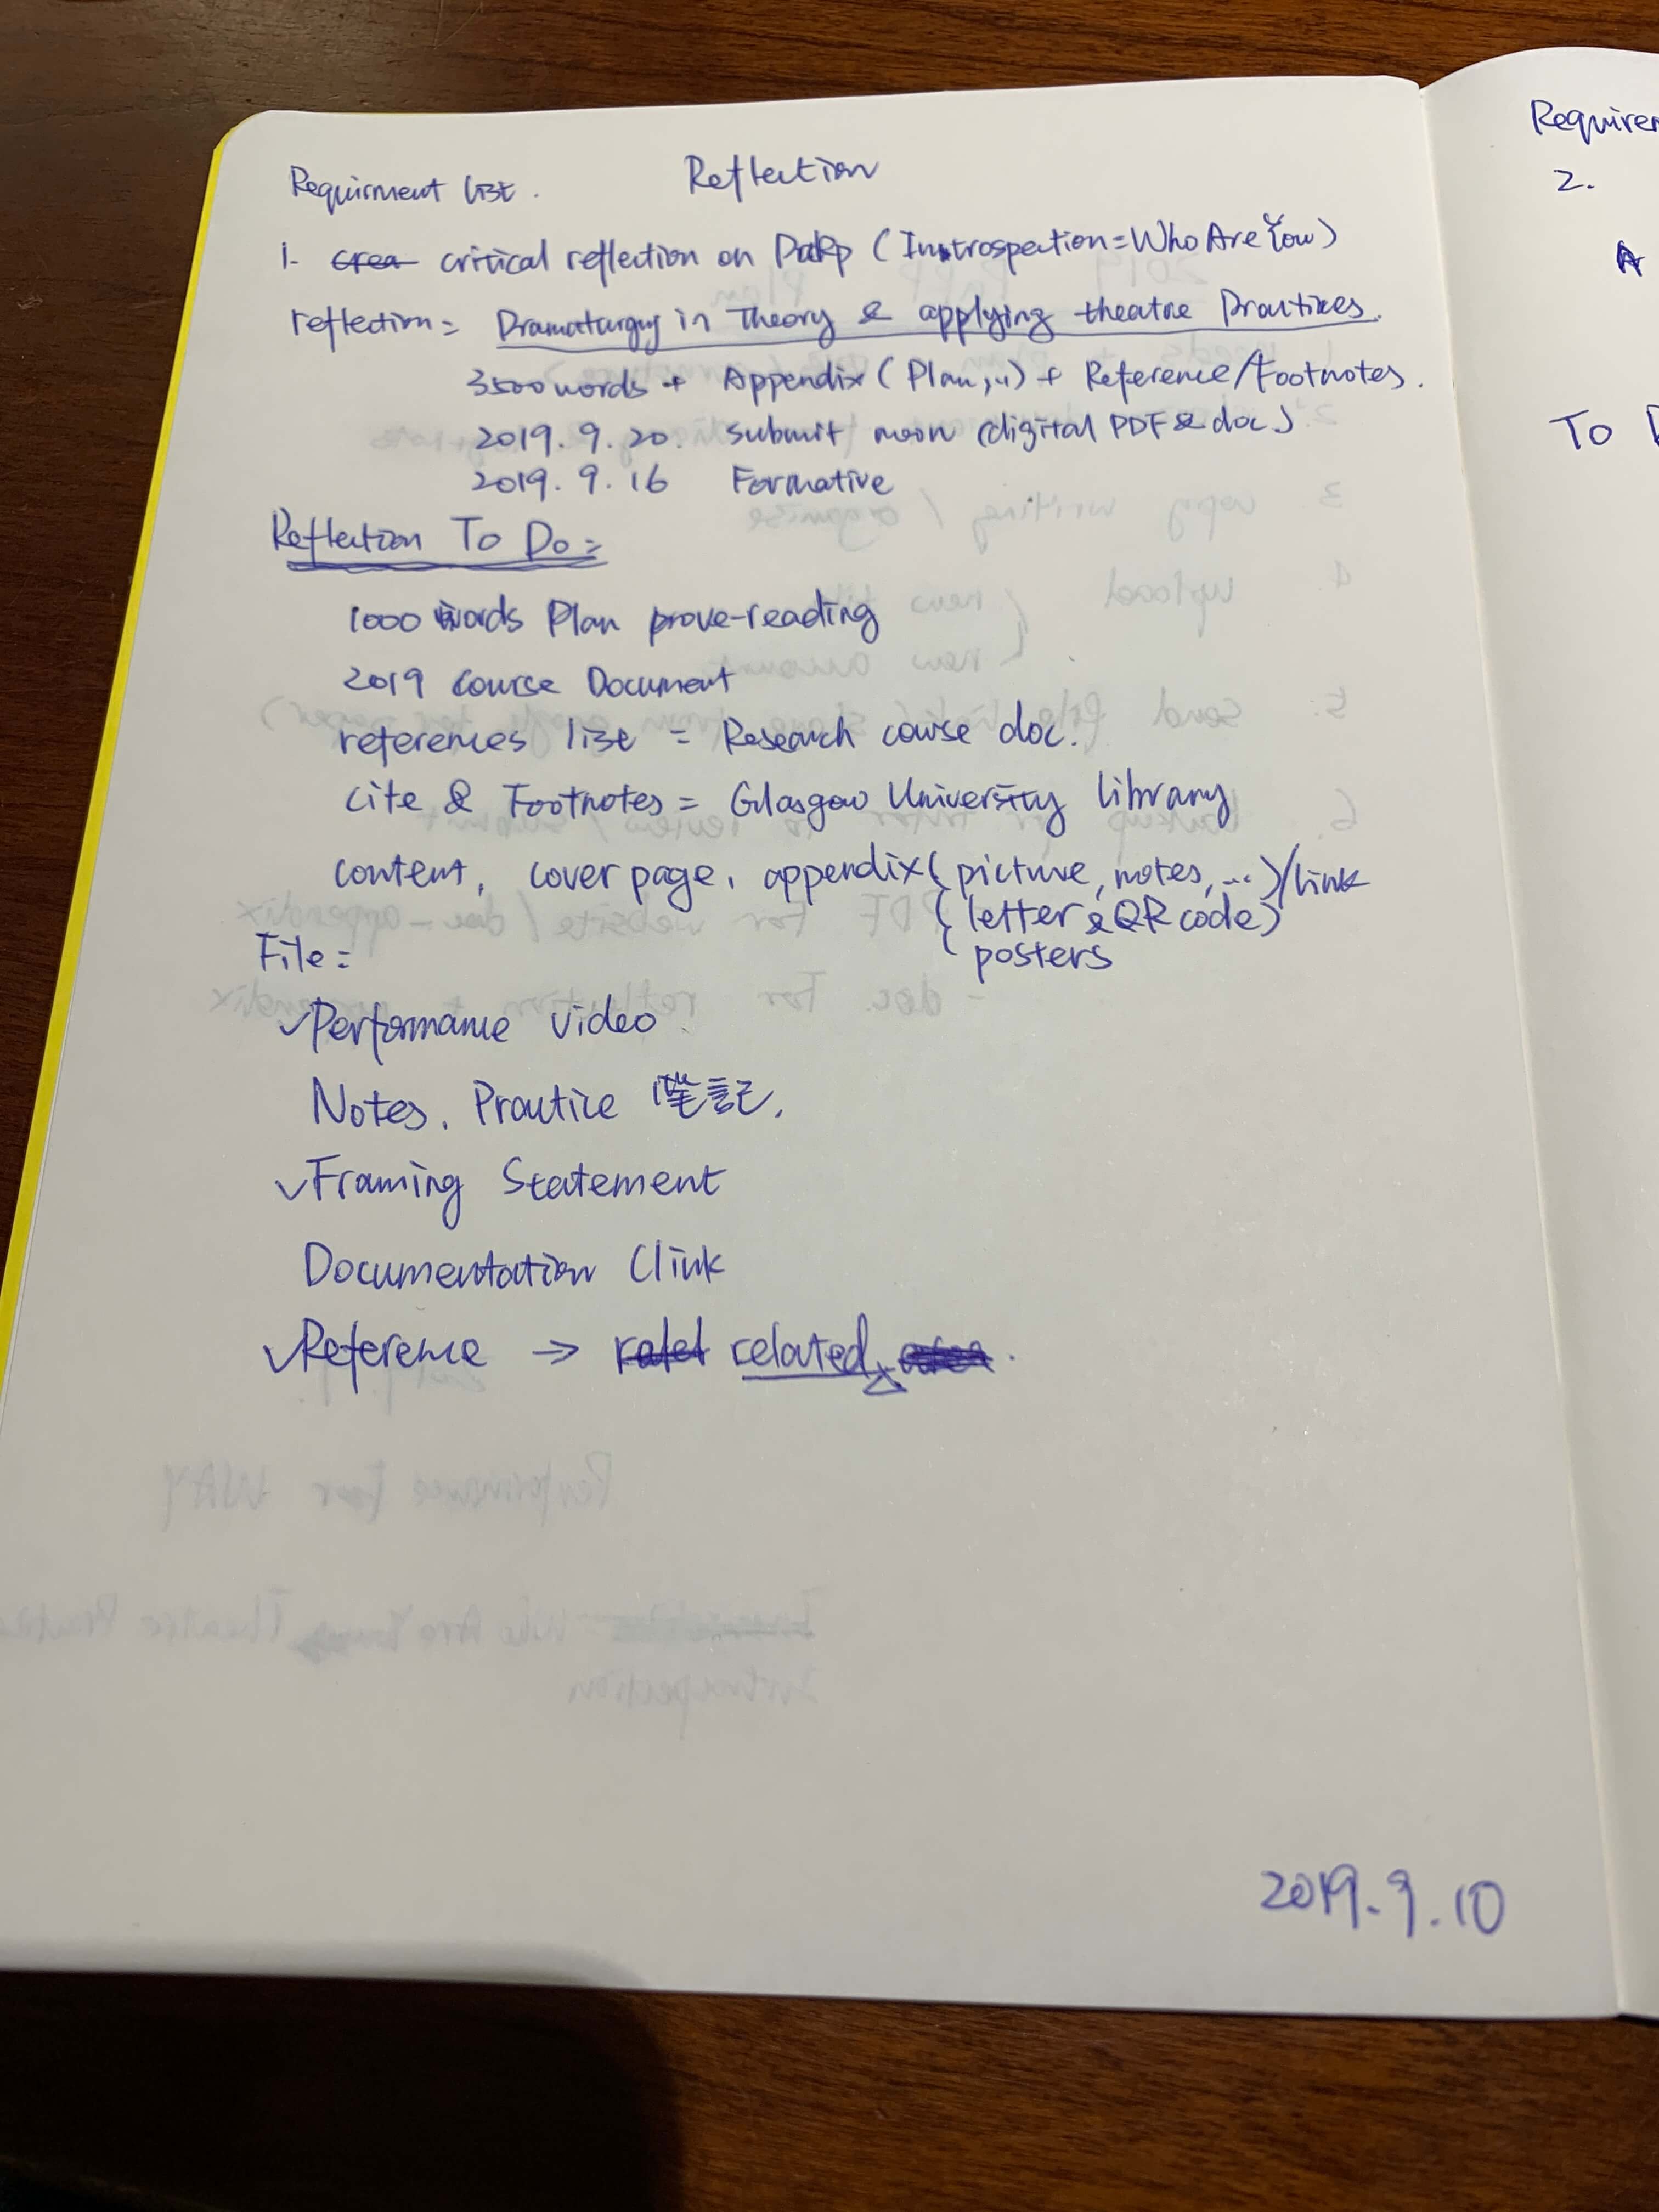 Requirment list. Reflection
1. crea critical reflection on PaRP (Introspection=Who Are You)
reflection = Dramaturgy in Theory & applying theatre Practices.
3500 words + Appendix (Plan, ..) + Reference/Footnotes.
2019. 9. 20. submit noon (digital PDF & doc.)
2019. 9. 16 Formative
Reflection To Do =
1000 words Plan prove-reading
2019 Course Document
references list = Research course doc.
cite & Footnotes = Glasgow University library
content, cover page, appendix (picture, notes, ...)/link
(letter & QR code)
( posters
File =
✓Performance video.
Notes. Practice 筆記.
✓Framing Statement
Documentation (link
✓Reference → ralet related
2019.9.10
Requirem
2.
A
To D